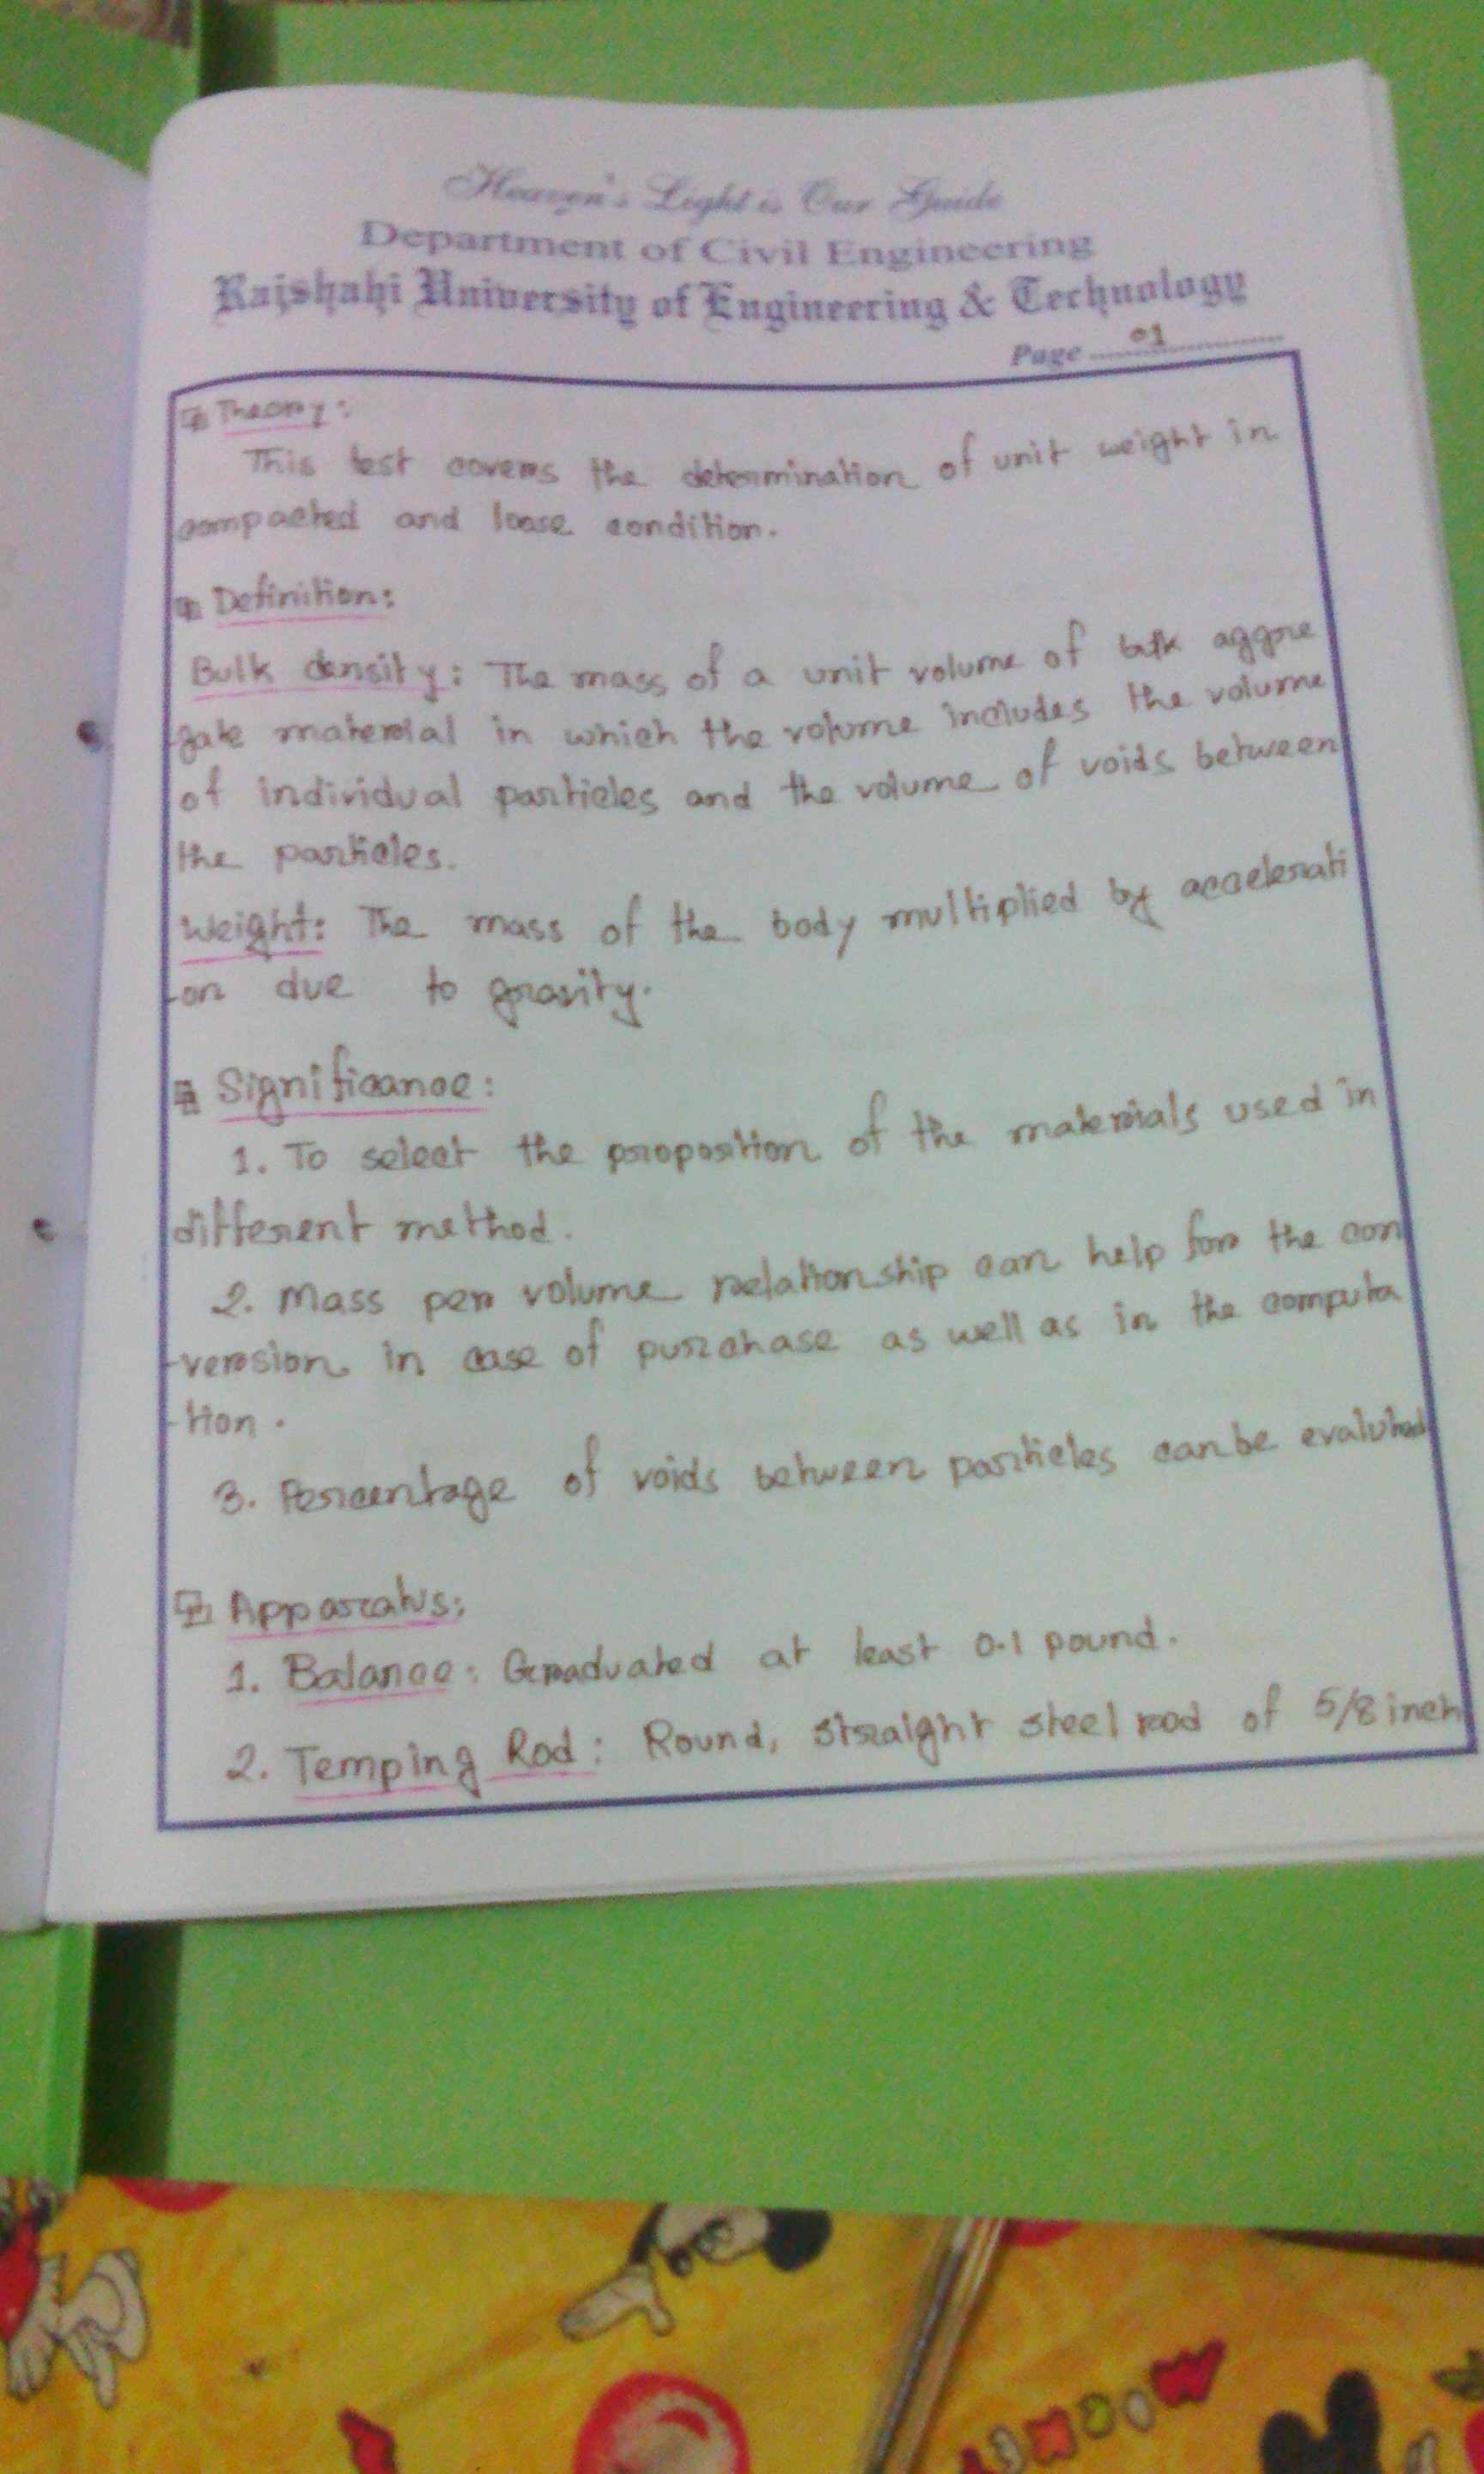 Heaven's Light is Our Guide
Department of Civil Engineering
Rajshahi University of Engineering & Technology
Page 01
Theory:
This test covers the determination of unit weight in
compacted and loose condition.
Definition:
Bulk density: The mass of a unit volume of bulk aggre
gate material in which the volume includes the volume
of individual particles and the volume of voids between
the particles.
Weight: The mass of the body multiplied by accelerati
-on due to gravity.
Significance:
1. To select the proportion of the materials used in
different method.
2. Mass per volume relationship can help for the con
-version in case of purchase as well as in the computa
-tion.
3. Percentage of voids between particles can be evaluted
Apparatus:
1. Balance: Graduated at least 0.1 pound.
2. Temping Rod: Round, straight steel rod of 5/8 inch